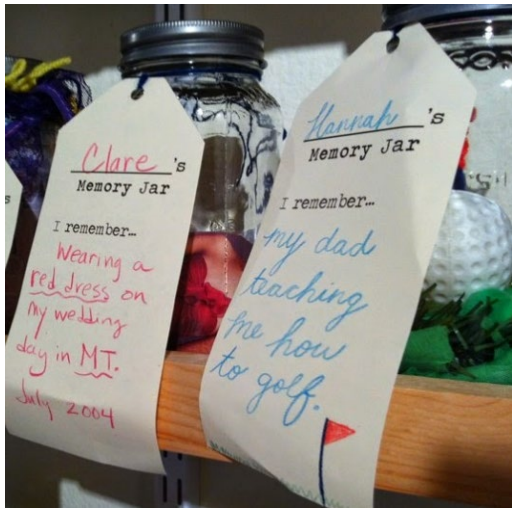 Clare's
Memory Jar
I remember...
Wearing a
red dress on
my wedding
day in MT.
July 2004
Hannah's
Memory Jar
I remember...
my dad
teaching
me how
to golf.